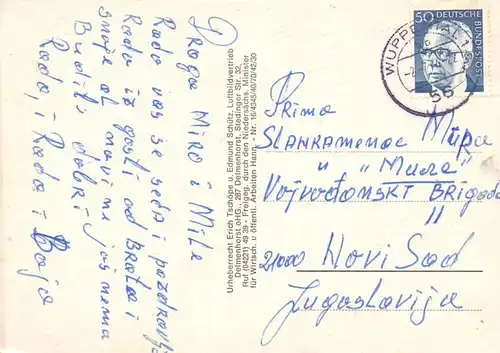 Draga Miro i Mile
Rado vas se seća i pozdravlja
Rado iz gosti od Brata i
snaje al novine još nema
Budite dobri
Rada, i Rada i Baja
Urheberrecht Erich Tschöpe u. Edmund Schütz, Luftbildvertrieb
Delmenhorst oHG., 287 Delmenhorst, Stedinger Str. 32,
Ruf (04221) 49 39 - Freigeg. durch den Niedersächs. Minister
für Wirtsch. u. öffentl. Arbeiten Hann. - Nr. 16/4345/40/70/42/30
50 DEUTSCHE BUNDESPOST
WUPPERTAL 1
56
Prima
SLANKAMENAC Mira
u "Mura"
VOJVOĐANSKI BRIGADA
11
21000 Novi Sad
Jugoslavija